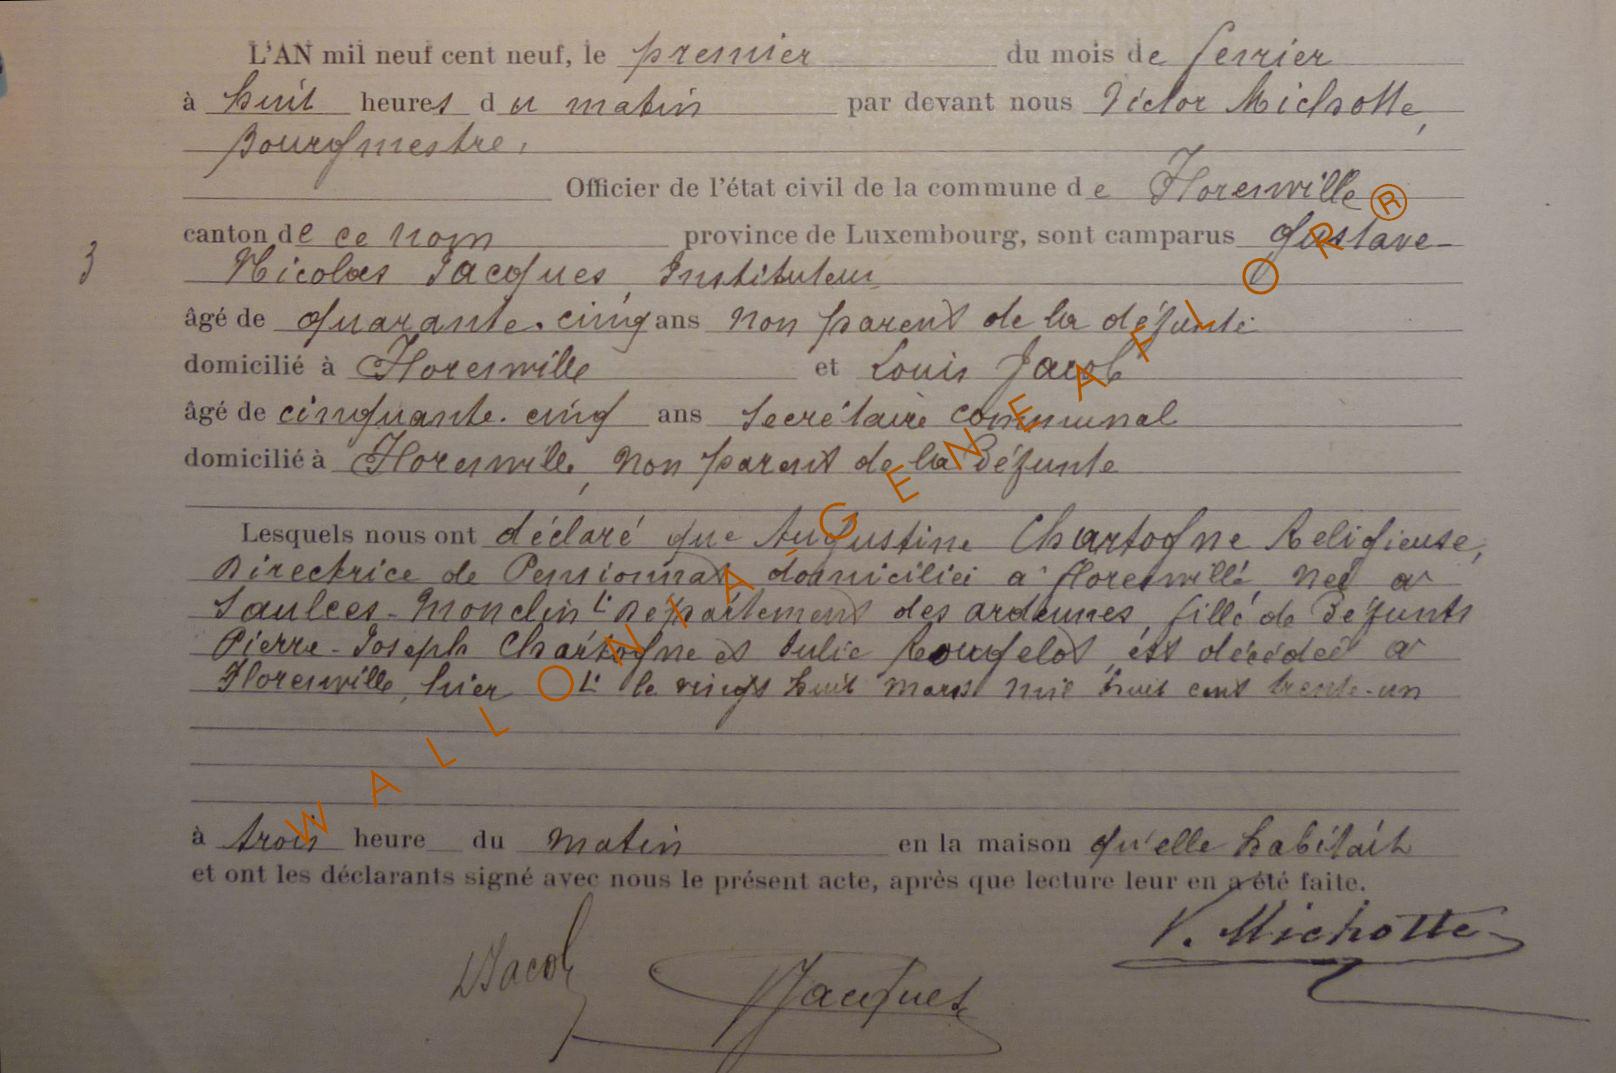 L'AN mil neuf cent neuf, le premier du mois de fevrier
à huit heures du matin par devant nous Victor Michotte,
Bourgmestre,
Officier de l'état civil de la commune de Florenville
canton de ce nom province de Luxembourg, sont camparus Gustave-
3 Nicolas Jacques, Instituteur
âgé de quarante-cinq ans non parent de la défunte
domicilié à Florenville et Louis Jacob
âgé de cinquante-cinq ans Secrétaire communal
domicilié à Florenville, non parent de la Défunte
Lesquels nous ont déclaré que Augustine Chartogne Religieuse,
Directrice de Pensionnat, domiciliée à Florenville, née à
Saulces-Monclin Département des ardennes, fille de Défunts
Pierre-Joseph Chartogne et Julie Rougelot, est décédée à
Florenville, hier le vingt huit mars mil huit cent trente-un
à trois heure du matin en la maison qu'elle habitait
et ont les déclarants signé avec nous le présent acte, après que lecture leur en a été faite.
V. Michotte
LJacob Jacques
WALLONIA GENEAFLOR ®